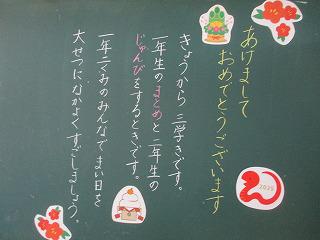 あけまして
おめでとうございます
きょうから 三学きです。
一年生のまとめと二年生の
じゅんびをするときです。
一年二くみのみんなでまい日を
大せつになかよくすごしましょう。
2025